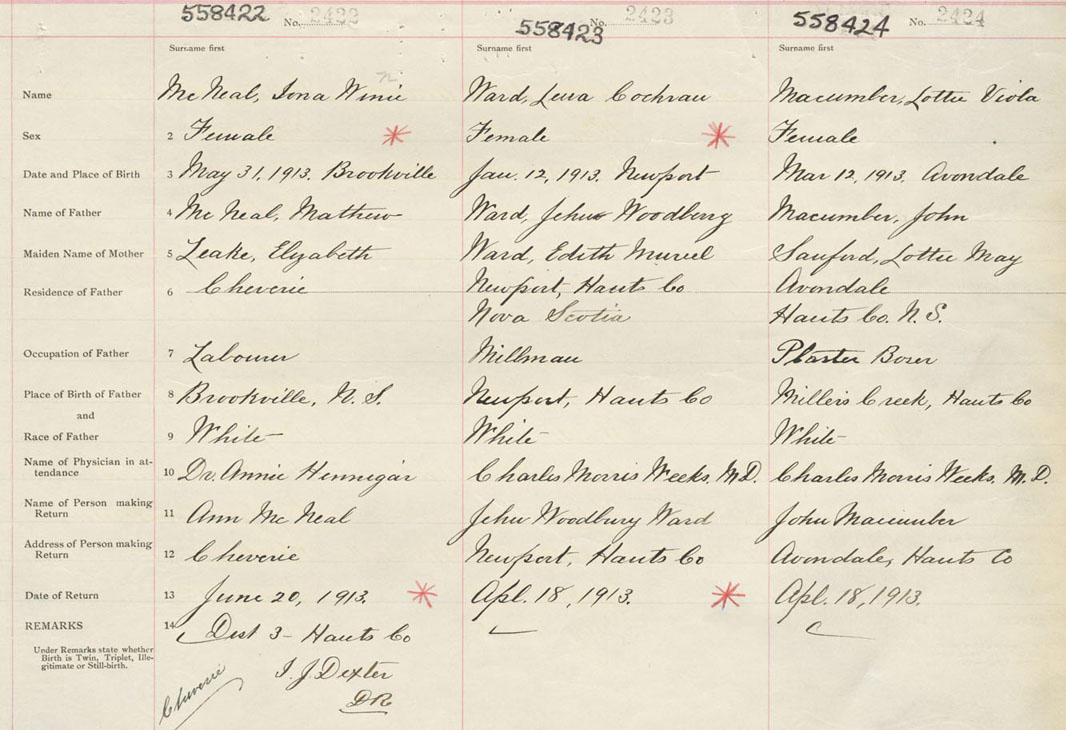 558422 No. 2422 558423 No. 2423 558424 No. 2424
Surname first Surname first Surname first
Name Mc Neal, Iona Winie Ward, Lewa Cochran Macumber, Lottie Viola
Sex 2 Female Female Female
Date and Place of Birth 3 May 31, 1913. Brookville Jan. 12, 1913. Newport Mar 12, 1913. Avondale
Name of Father 4 Mc Neal, Mathew Ward, Jehu Woodberry Macumber, John
Maiden Name of Mother 5 Leake, Elizabeth Ward, Edith Muriel Sanford, Lottie May
Residence of Father 6 Cheverie Newport, Hants Co Avondale
Nova Scotia Hants Co. N.S.
Occupation of Father 7 Labourer Millman Plaster Borer
Place of Birth of Father 8 Brookville, N.S. Newport, Hants Co Millers Creek, Hants Co
and
Race of Father 9 White White White
Name of Physician in at-
tendance 10 Dr. Annie Hennigar Charles Morris Weeks, M.D. Charles Morris Weeks, M.D.
Name of Person making
Return 11 Ann Mc Neal Jehu Woodbury Ward John Macumber
Address of Person making
Return 12 Cheverie Newport, Hants Co Avondale, Hants Co
Date of Return 13 June 20, 1913. Apl. 18, 1913. Apl. 18, 1913.
REMARKS 14 Dist 3 - Hants Co
Under Remarks state whether
Birth is Twin, Triplet, Ille-
gitimate or Still-birth.
Cheverie I. J Dexter
DR